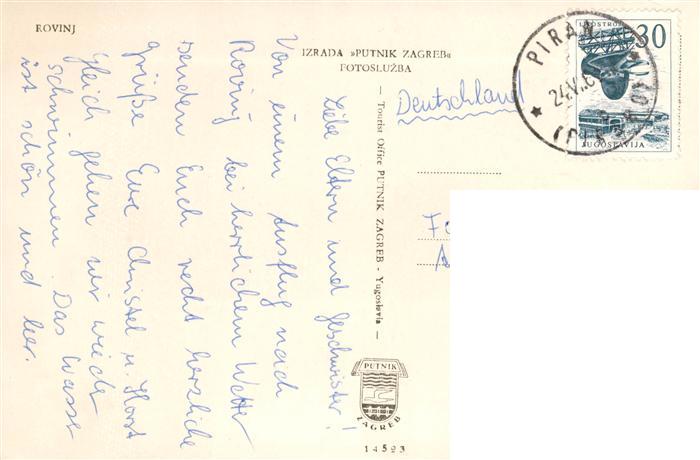 ROVINJ
IZRADA »PUTNIK ZAGREB«
FOTOSLUŽBA
Liebe Eltern und Geschwister!
Von einem Ausflug nach
Rovinj bei herrlichem Wetter
senden Euch recht herzliche
Grüße Eure Christel u. Horst
Gleich gehen wir wieder
schwimmen. Das Wasser
ist schön und leer.
— Tourist Office PUTNIK ZAGREB - Yugoslavia —
PUTNIK
ZAGREB
14593
Deutschland
PIRAN
24.V.6
30
JUGOSLAVIJA